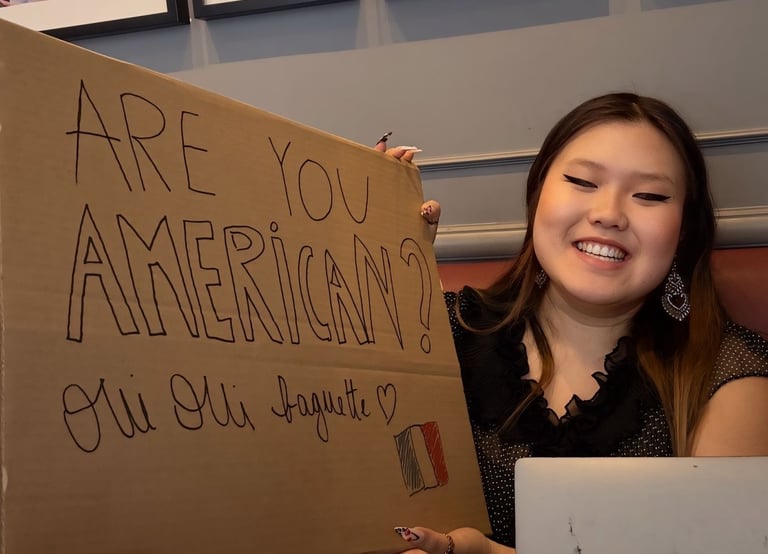 ARE YOU
AMERiCAN?
oui oui baguette ♡